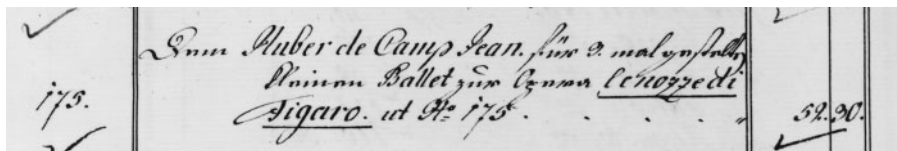 Dem Huber de Camp Jean. für 3. mal gestelltes
kleinen Ballet zur Opera le nozze di
175. Figaro. ut No: 175 . . . . " 52.30.